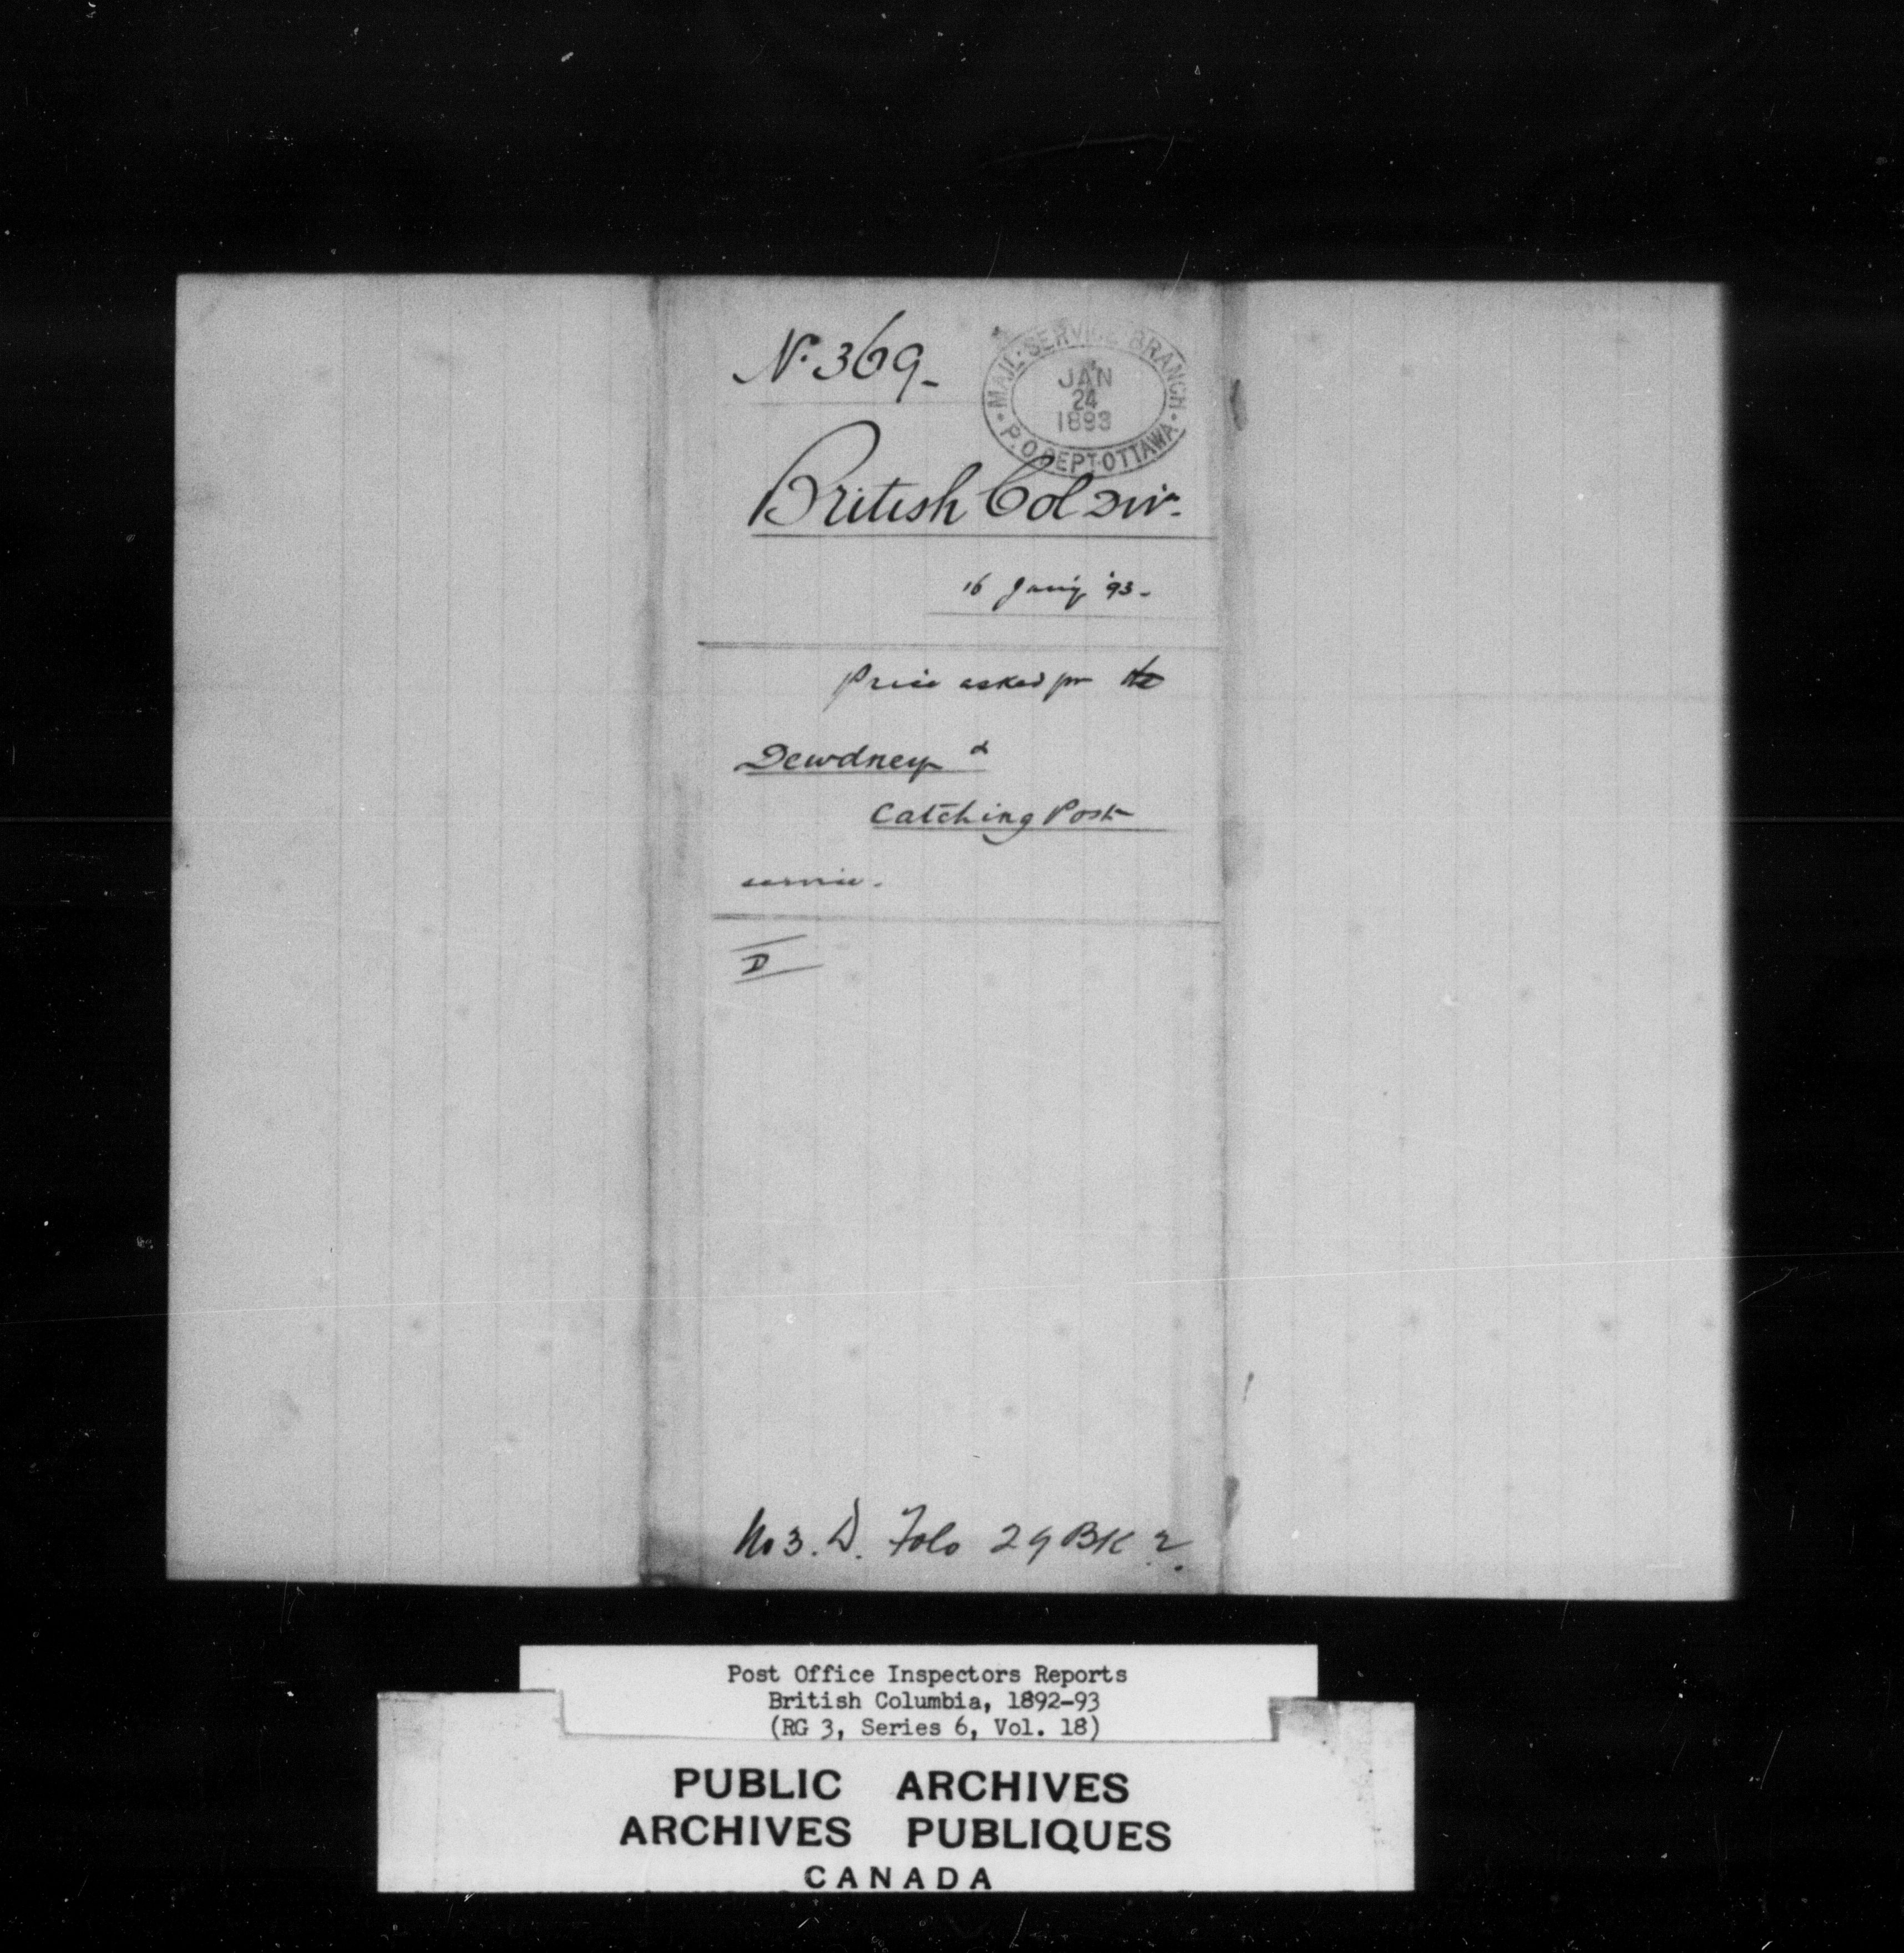 No. 369-
MAIL SERVICE BRANCH
JAN
24
1893
P.O. DEPT. OTTAWA
British Col Div.
16 Jany '93-
Price asked for the
Dewdney &
Catching Post
service.
D
No 3. D. Folo 29 BK 2.
Post Office Inspectors Reports
British Columbia, 1892-93
(RG 3, Series 6, Vol. 18)
PUBLIC ARCHIVES
ARCHIVES PUBLIQUES
CANADA